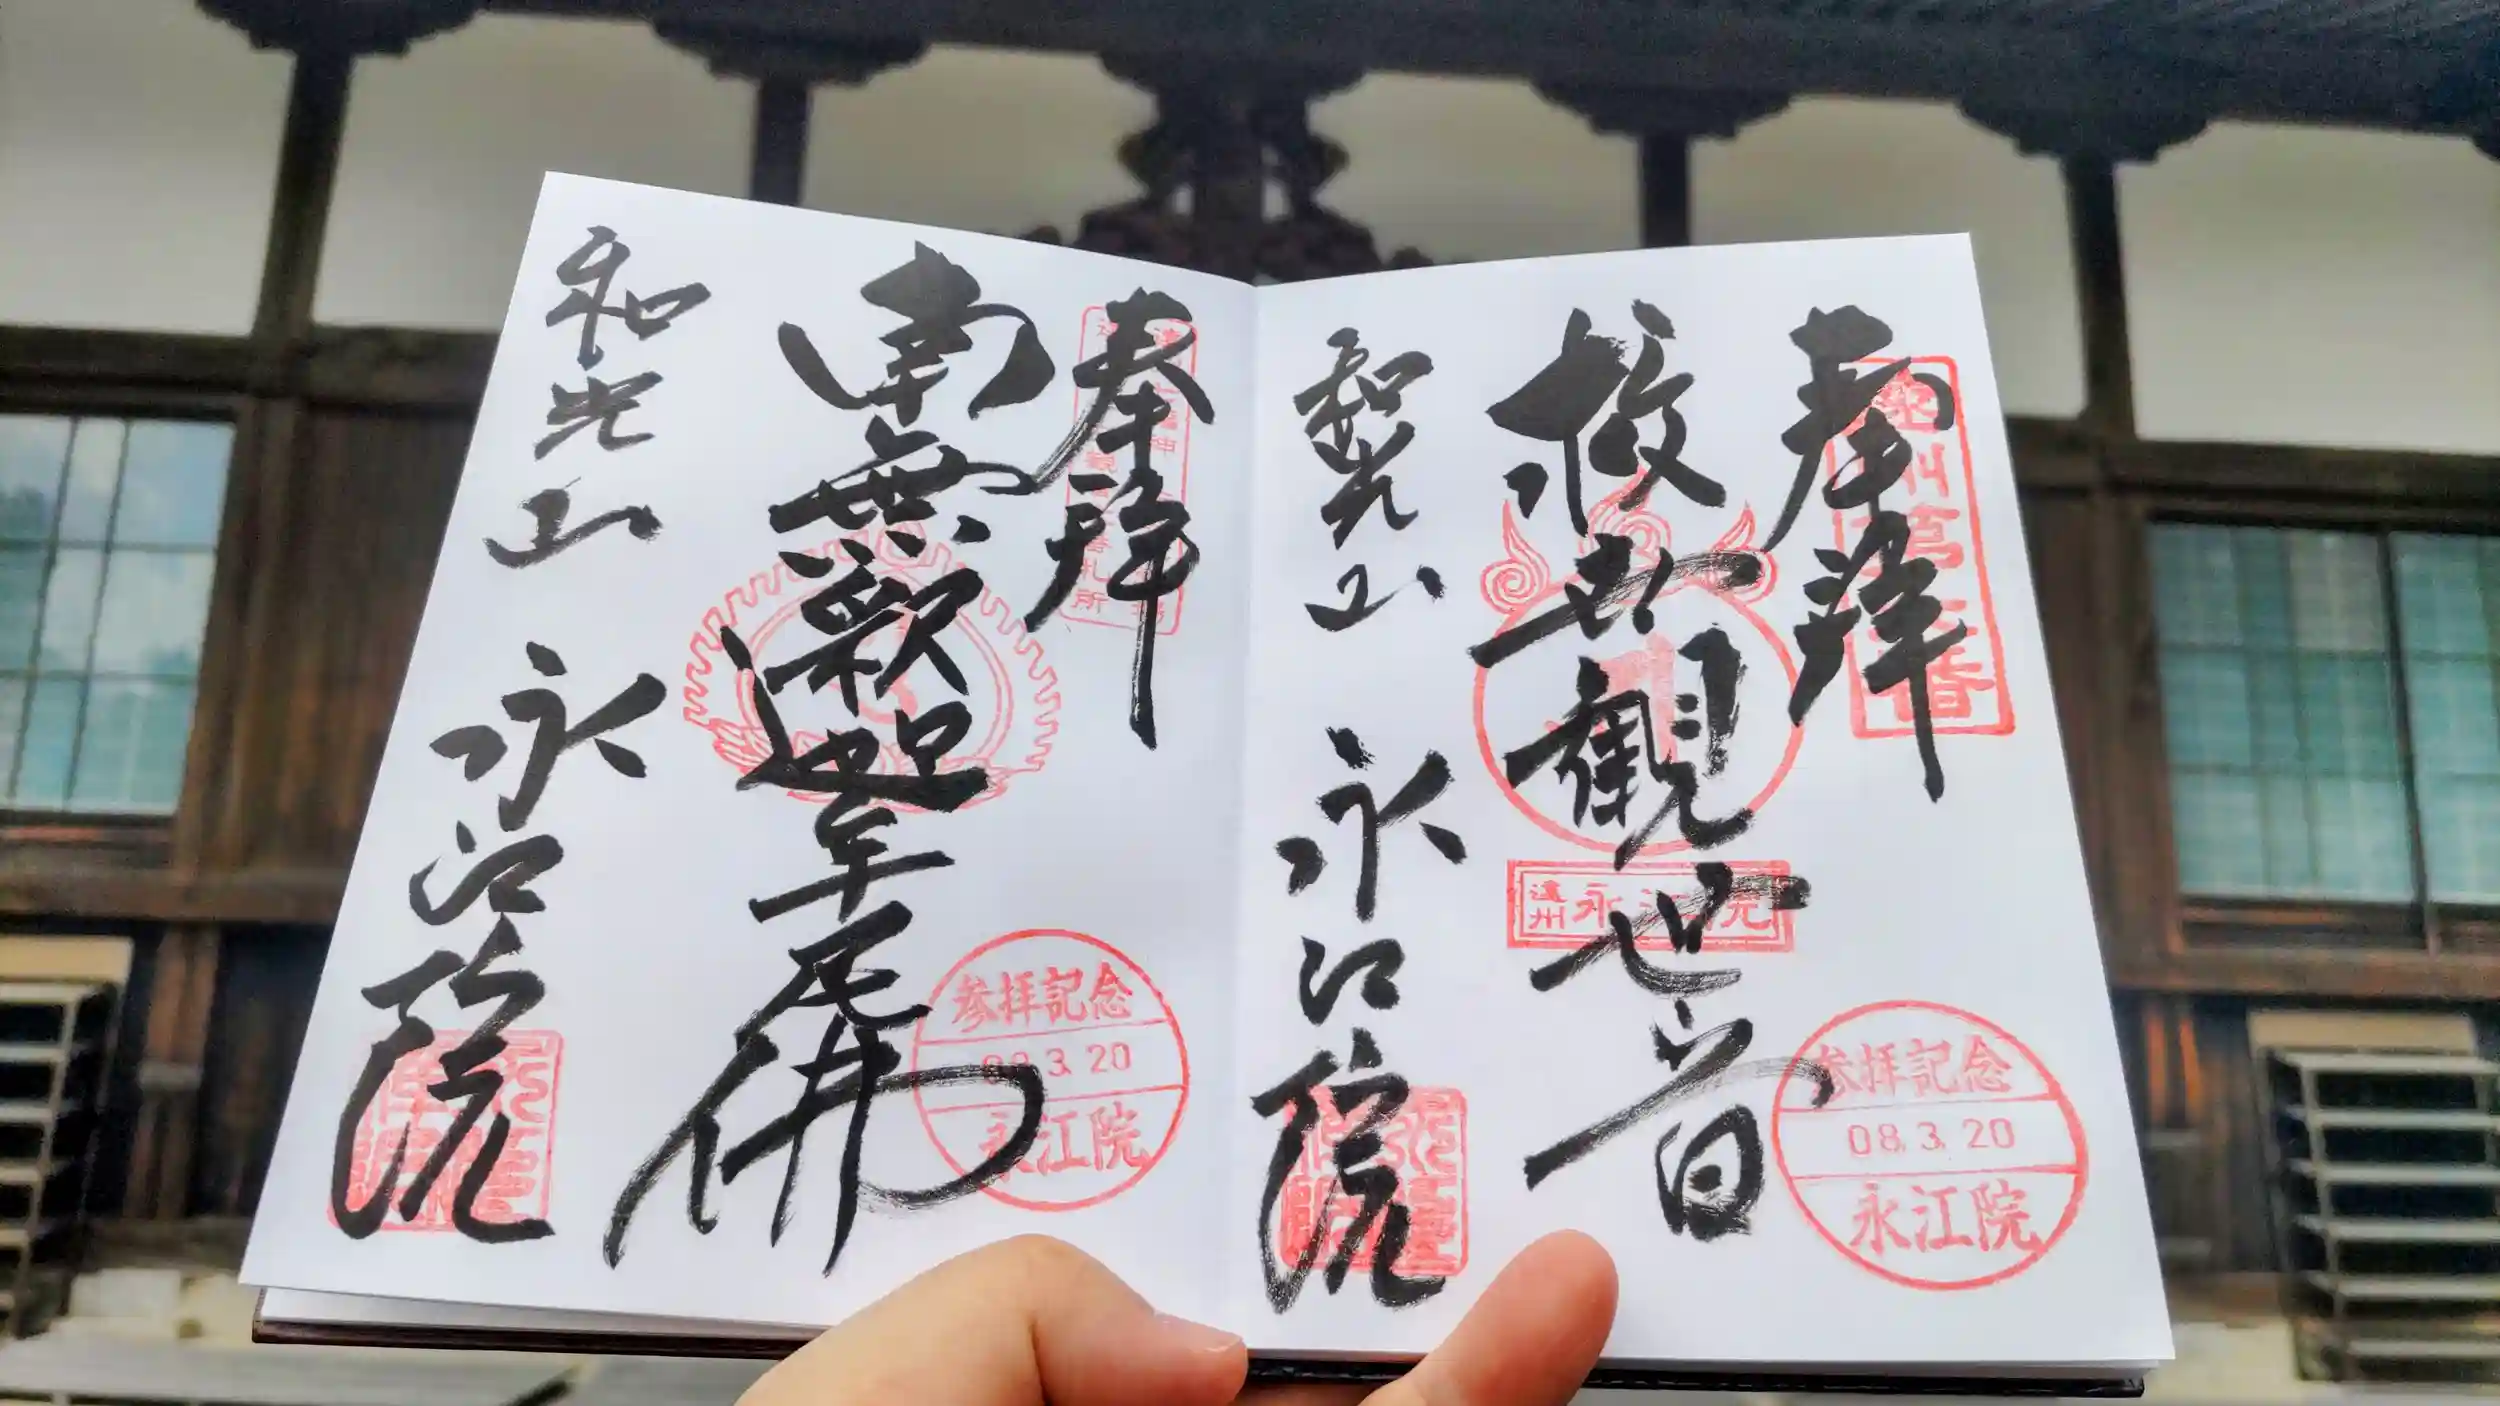 奉拝
観世音
和光山 永江院
遠州 永江院
参拝記念
08.3.20
永江院
奉拝
南無釈迦牟尼佛
和光山 永江院
参拝記念
08.3.20
永江院